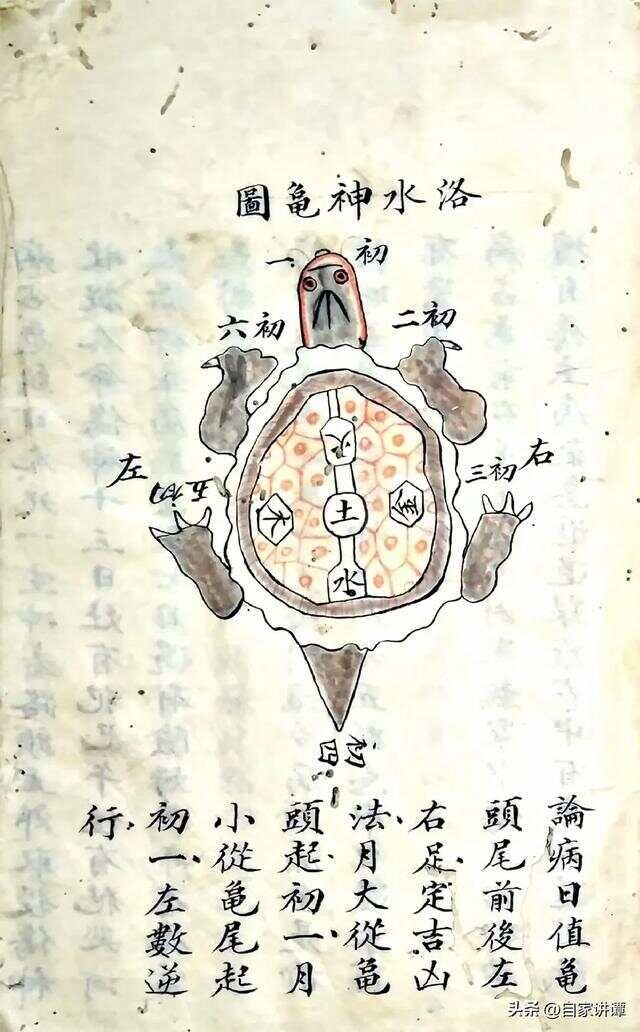 洛水神亀圖
初一
初二
初六
右
初三
左
初五
火
金
土
木
水
初四
論病日值亀
頭尾前後左
右足定吉凶
法月大從亀
頭起初一月
小從亀尾起
初一左數逆
行
头条 @自家讲谭